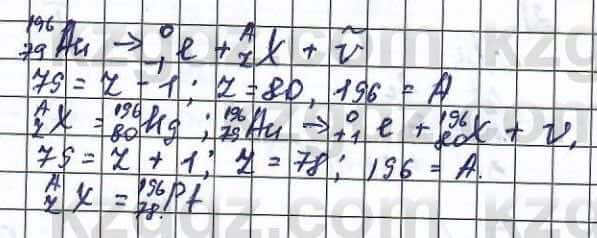 ¹⁹⁶₇₉Au → ⁰₋₁e + ᴬ_Z X + ṽ
79 = Z - 1; Z = 80, 196 = A
ᴬ_Z X = ¹⁹⁶₈₀Hg; ¹⁹⁶₇₉Au → ⁰₊₁e + ¹⁹⁶₈₀X + ν,
79 = Z + 1; Z = 78; 196 = A.
ᴬ_Z X = ¹⁹⁶₇₈Pt